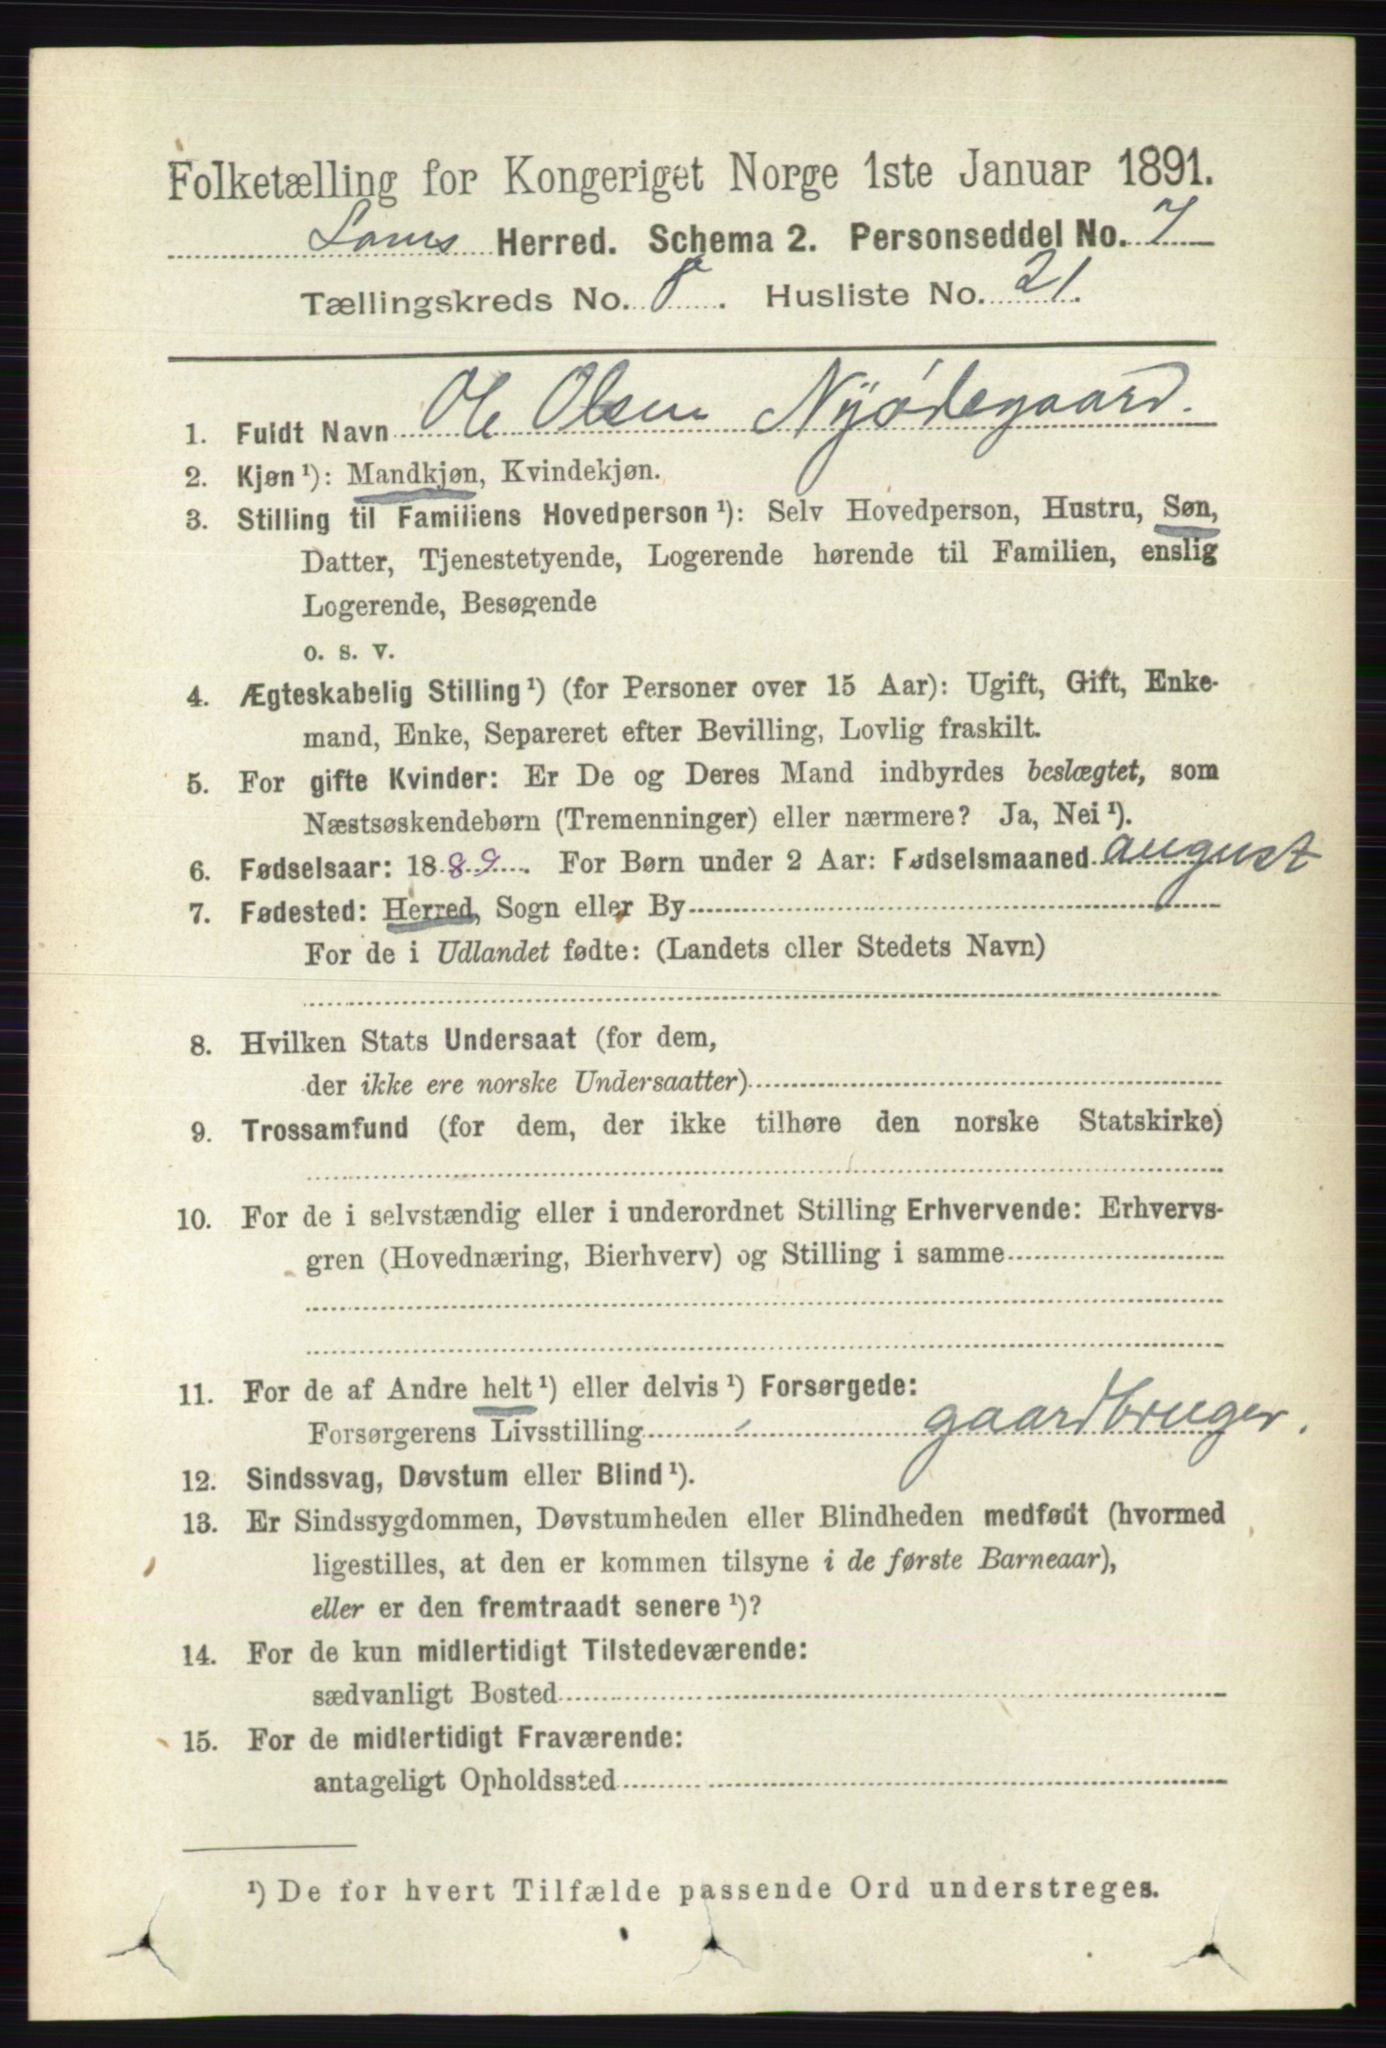 Folketælling for Kongeriget Norge 1ste Januar 1891.
Loms Herred. Schema 2. Personseddel No. 7
Tællingskreds No. 8. Husliste No. 21.
1. Fuldt Navn Ole Olsen Nyødegaard.
2. Kjøn¹): Mandkjøn, Kvindekjøn.
3. Stilling til Familiens Hovedperson¹): Selv Hovedperson, Hustru, Søn,
Datter, Tjenestetyende, Logerende hørende til Familien, enslig
Logerende, Besøgende
o. s. v.
4. Ægteskabelig Stilling¹) (for Personer over 15 Aar): Ugift, Gift, Enke-
mand, Enke, Separeret efter Bevilling, Lovlig fraskilt.
5. For gifte Kvinder: Er De og Deres Mand indbyrdes beslægtet, som
Næstsøskendebørn (Tremenninger) eller nærmere? Ja, Nei¹).
6. Fødselsaar: 1889. For Børn under 2 Aar: Fødselsmaaned august
7. Fødested: Herred, Sogn eller By
For de i Udlandet fødte: (Landets eller Stedets Navn)
8. Hvilken Stats Undersaat (for dem,
der ikke ere norske Undersaatter)
9. Trossamfund (for dem, der ikke tilhøre den norske Statskirke)
10. For de i selvstændig eller i underordnet Stilling Erhvervende: Erhvervs-
gren (Hovednæring, Bierhverv) og Stilling i samme
11. For de af Andre helt¹) eller delvis¹) Forsørgede:
Forsørgerens Livsstilling gaardbruger.
12. Sindssvag, Døvstum eller Blind¹).
13. Er Sindssygdommen, Døvstumheden eller Blindheden medfødt (hvormed
ligestilles, at den er kommen tilsyne i de første Barneaar),
eller er den fremtraadt senere¹)?
14. For de kun midlertidigt Tilstedeværende:
sædvanligt Bosted
15. For de midlertidigt Fraværende:
antageligt Opholdssted
¹) De for hvert Tilfælde passende Ord understreges.